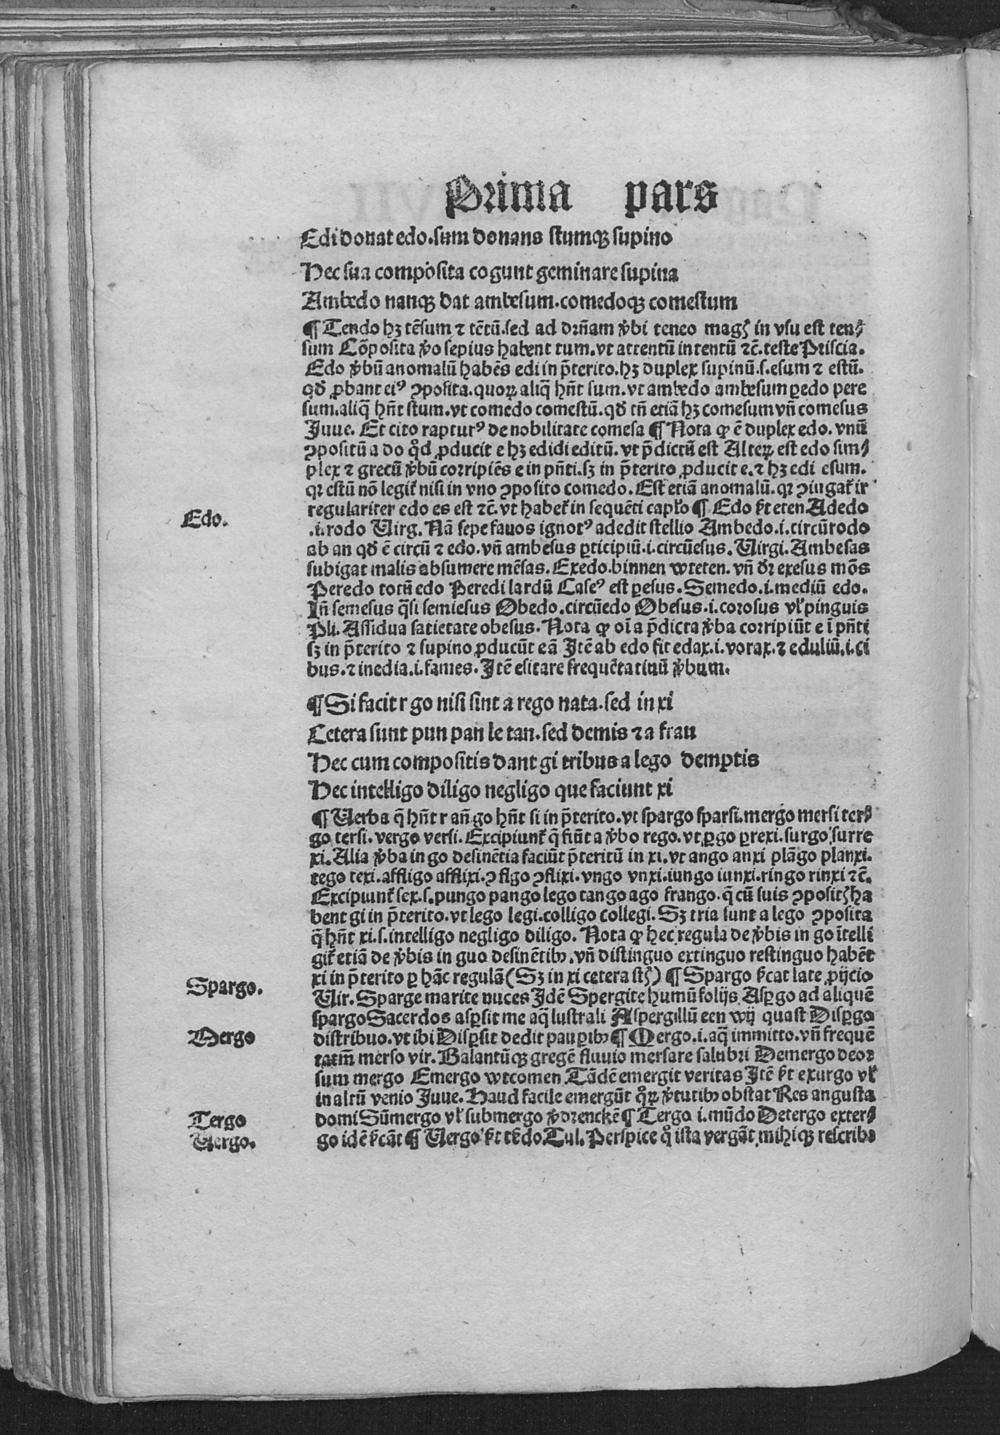 Prima pars
Edi donat edo.sum donans stumqꝫ supino
Hec sua composita cogunt geminare supina
Ambedo nanqꝫ dat ambesum.comedoqꝫ comestum
¶ Tendo hꝫ tēsum ⁊ tētū.sed ad drn̄am v̄bi teneo magꝭ in vsu est ten⸗
sum Cōposita v̄o sepius habent tum.vt attentū intentū ⁊c̄.teste Priscia.
Edo v̄bū anomalū habēs edi in p̄terito.hꝫ duplex supinū.s.esum ⁊ estū.
qd̄ ꝓbant eiꝰ ꝯposita.quoꝝ aliq̄ hn̄t sum.vt ambedo ambesum ꝑedo pere
sum.aliq̄ hn̄t stum.vt comedo comestū.qd̄ tn̄ etiā hꝫ comesum vn̄ comesus
Juue. Et cito rapturꝰ de nobilitate comesa ¶ Nota ꝙ ē duplex edo. vnū
ꝯpositū a do qd̄ ꝓducit e hꝫ edidi editū. vt p̄dictū est Alteꝝ est edo sim⸗
plex ⁊ grecū v̄bū corripiēs e in pn̄ti.sꝫ in p̄terito ꝓducit e.⁊ hꝫ edi esum.
qꝛ estū nō legit̄ nisi in vno ꝯposito comedo. Est etiā anomalū. qꝛ ꝯiugat̄ ir
regulariter edo es est ⁊c̄. vt habet̄ in sequēti cap̄lo ¶ Edo s̄t eten Adedo
Edo.
.i.rodo Virg. Nā sepe fauos ignorꝰ adedit stellio Ambedo.i.circūrodo
ab an qd̄ ē circū ⁊ edo.vn̄ ambesus ꝑticipiū.i.circūesus. Virgi. Ambesas
subigat malis absumere mēsas. Exedo.binnen wteten. vn̄ dr̄ exesus mōs
Peredo totū edo Peredi lardū Caseꝰ est ꝑesus. Semedo.i.mediū edo.
Jn̄ semesus q̄si semiesus Obedo.circūedo Obesus.i.corosus vl̓ pinguis
Pli. Assidua satietate obesus. Nota ꝙ oīa p̄dicta v̄ba corripiūt e ī pn̄ti
sꝫ in p̄terito ⁊ supino ꝓducūt eā Jtē ab edo fit edax.i.vorax.⁊ eduliū.i.ci
bus.⁊ inedia.i.fames. Jtē esitare frequētatiuū v̄bum.
¶ Si facit r go nisi sint a rego nata.sed in xi
Cetera sunt pun pan le tan.sed demis ⁊ a frau
Hec cum compositis dant gi tribus a lego demptis
Hec intelligo diligo negligo que faciunt xi
¶ Verba q̄ hn̄t r an̄ go hn̄t si in p̄terito.vt spargo sparsi.mergo mersi ter⸗
go tersi.vergo versi.Excipiunt̄ q̄ fiūt a v̄bo rego.vt ꝑgo ꝑrexi.surgo surre
xi. Alia v̄ba in go desinētia faciūt p̄teritū in xi.vt ango anxi plāgo planxi.
tego texi.affligo afflixi.ꝯfligo ꝯflixi.vngo vnxi.iungo iunxi.ringo rinxi ⁊c̄.
Excipiunt̄ sex.s.pungo pango lego tango ago frango.q̄ cū suis ꝯpositꝭ ha
bent gi in p̄terito.vt lego legi.colligo collegi. Sꝫ tria sunt a lego ꝯposita
q̄ hn̄t xi.s.intelligo negligo diligo. Nota ꝙ hec regula de v̄bis in go ītelli
git̄ etiā de v̄bis in guo desinētibꝫ.vn̄ distinguo extinguo restinguo habēt
xi in p̄terito ꝑ hāc regulā (Sꝫ in xi cetera stꝭ) ¶ Spargo s̄cat late ꝓijcio
Spargo.
Vir. Sparge marite nuces Jdē Spergite humū folijs Asꝑgo ad aliquē
spargo Sacerdos asꝑsit me aq̄ lustrali Aspergillū een wij quast Disꝑgo
Mergo
distribuo.vt ibi Disꝑsit dedit pauꝑibꝫ ¶ Mergo.i.aq̄ immitto.vn̄ frequē
tatiū merso vir. Balantūqꝫ gregē fluuio mersare salubri Demergo deor
sum mergo Emergo wtcomen Tādē emergit veritas Jtē s̄t exurgo vl̓
in altū venio Juue. Haud facile emergūt qͦꝝ v̄tutibꝫ obstat Res angusta
Tergo
domi Sūmergo vl̓ submergo v̄drenckē ¶ Tergo i.mūdo Detergo exter⸗
Vergo.
go idē s̄cāt ¶ Vergo s̄t tēdo Tul. Perspice qͦ ista vergāt mihiqꝫ rescribe